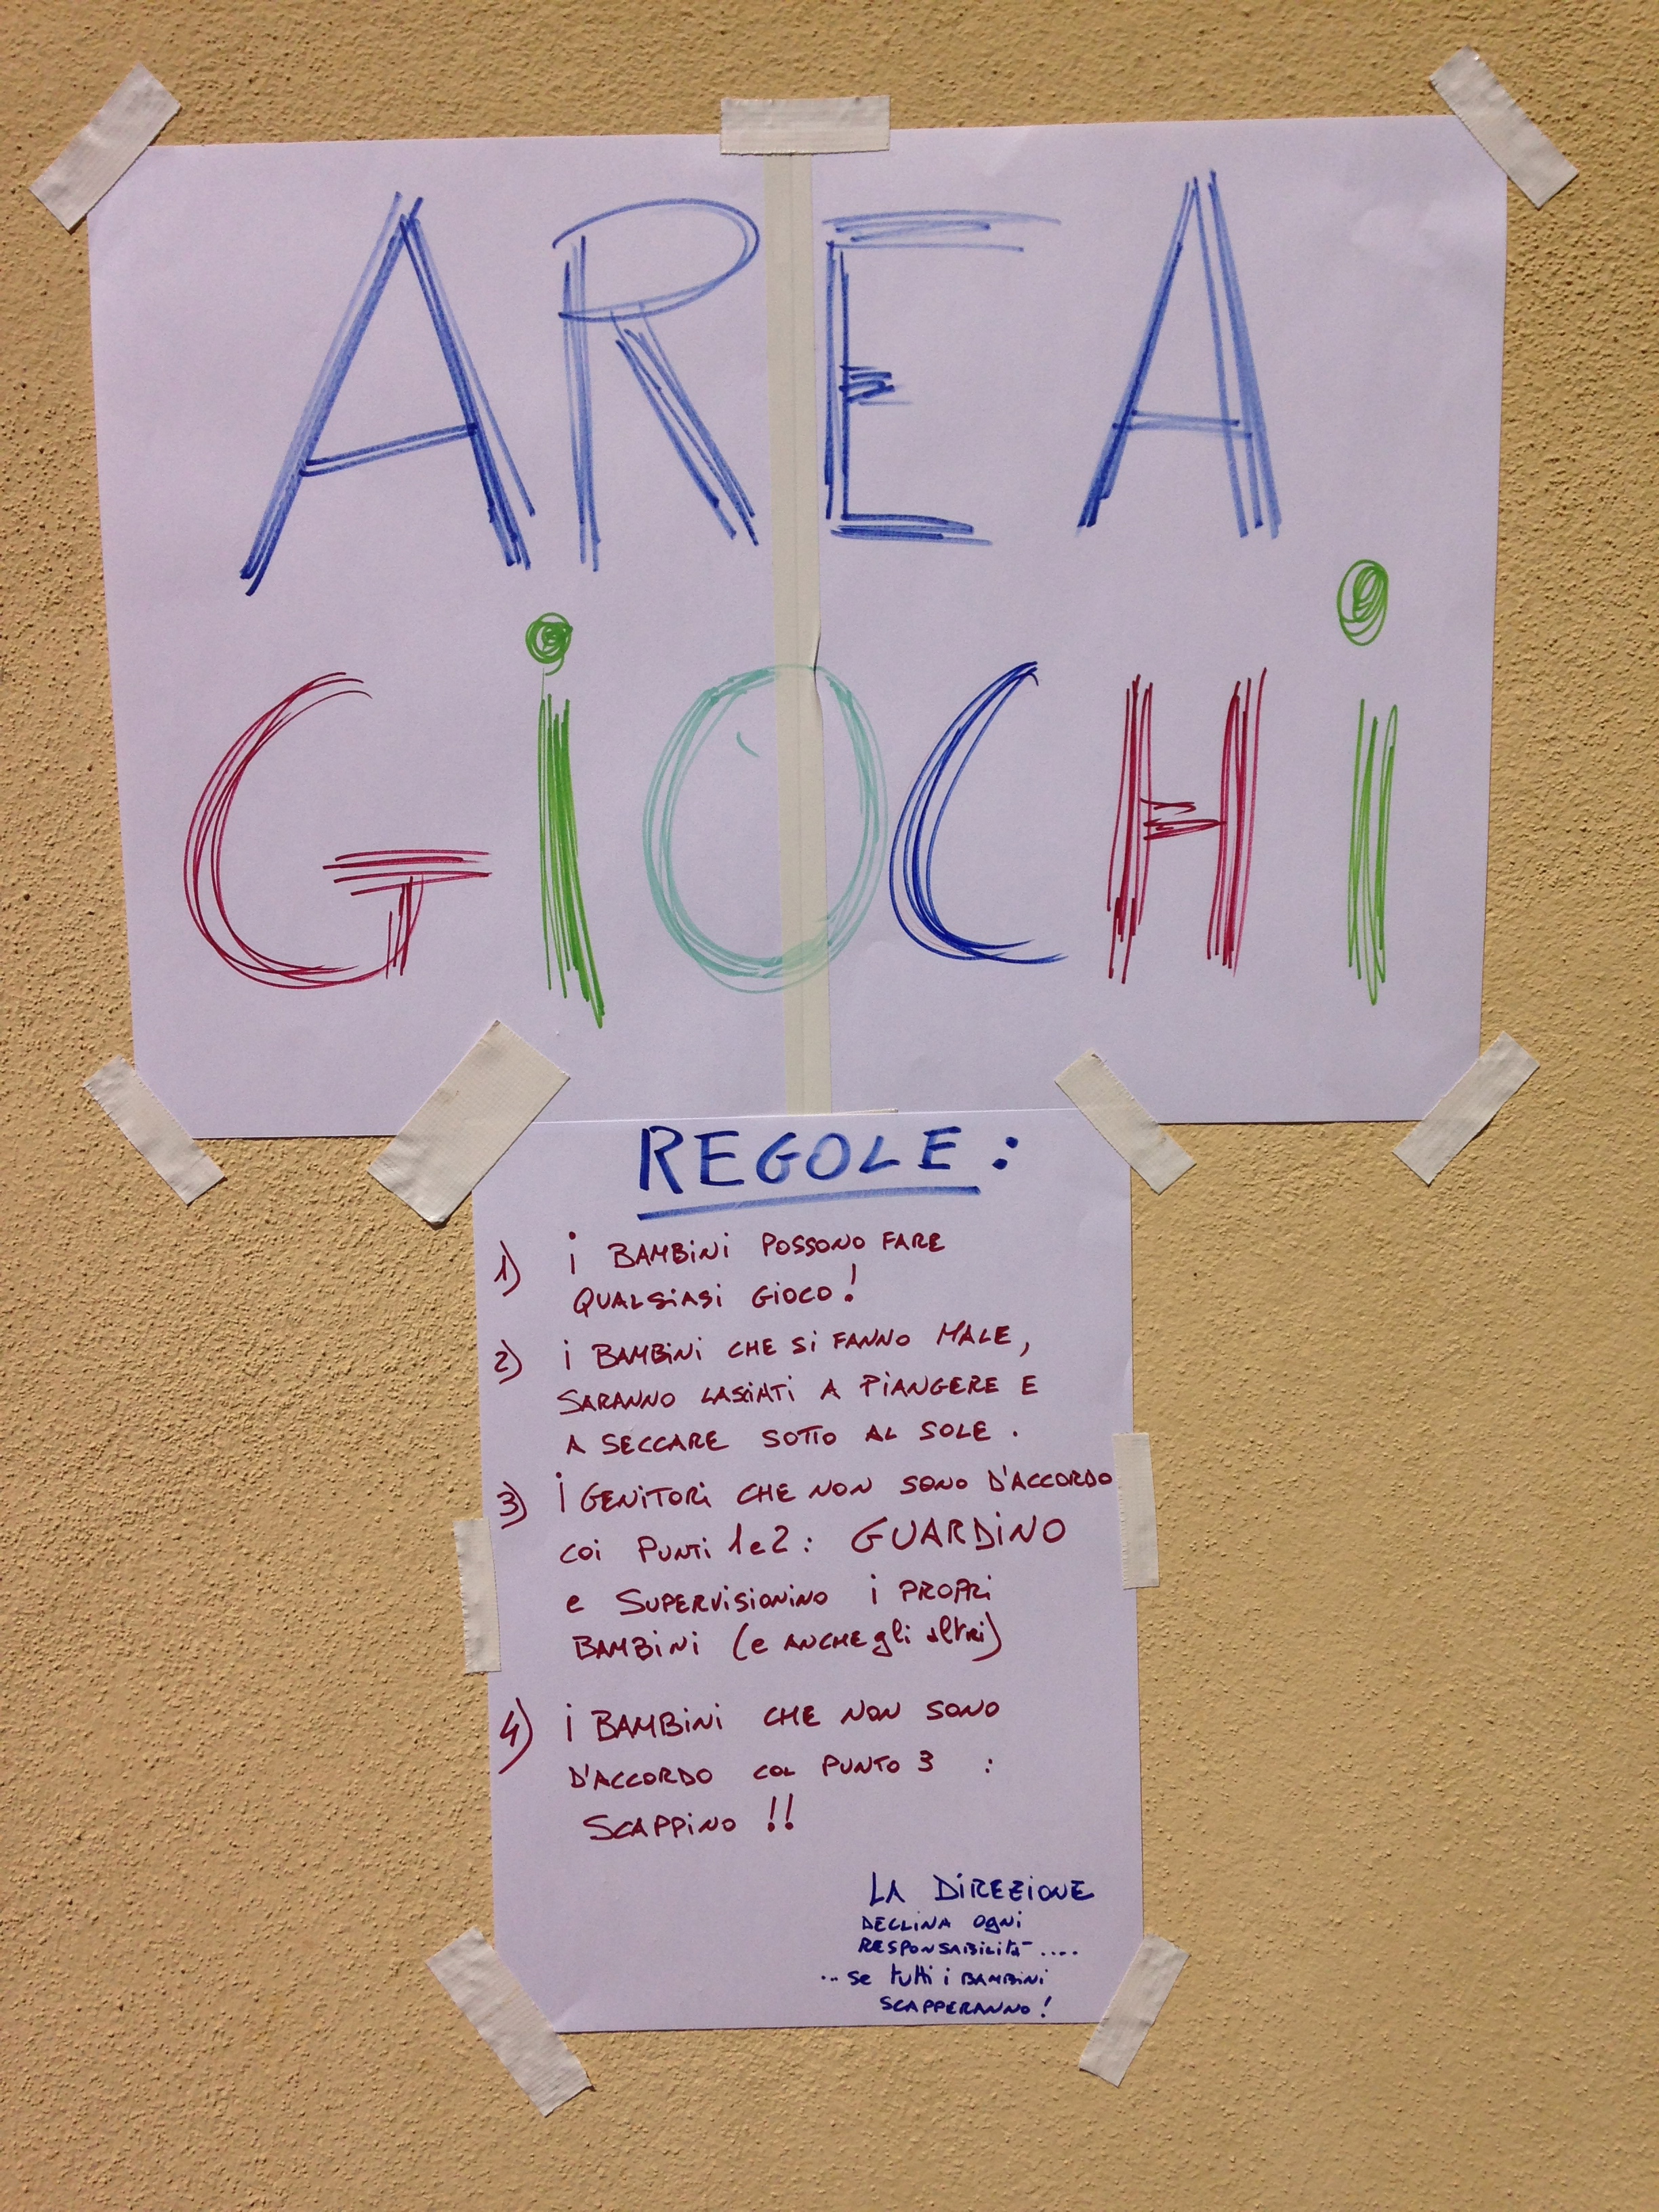 AREA
GiOCHi
REGOLE:
1) i BAMBiNi POSSONO FARE
QUALSiASi GiOCO!
2) i BAMBiNi CHE Si FANNO MALE,
SARANNO LASCiATi A PiANGERE E
A SECCARE SOTTO AL SOLE.
3) i GENiTORi CHE NON SONO D'ACCORDO
COi PUNTi 1e2: GUARDiNO
e SUPERViSiONiNO i PROPRi
BAMBiNi (e ANCHE gli altri)
4) i BAMBiNi CHE NON SONO
D'ACCORDO COL PUNTO 3 :
SCAPPiNO !!
LA DiREZiONE
DECLiNA OgNi
RESPONSABiLità ....
...se tutti i BAMBiNi
SCAPPERANNO!